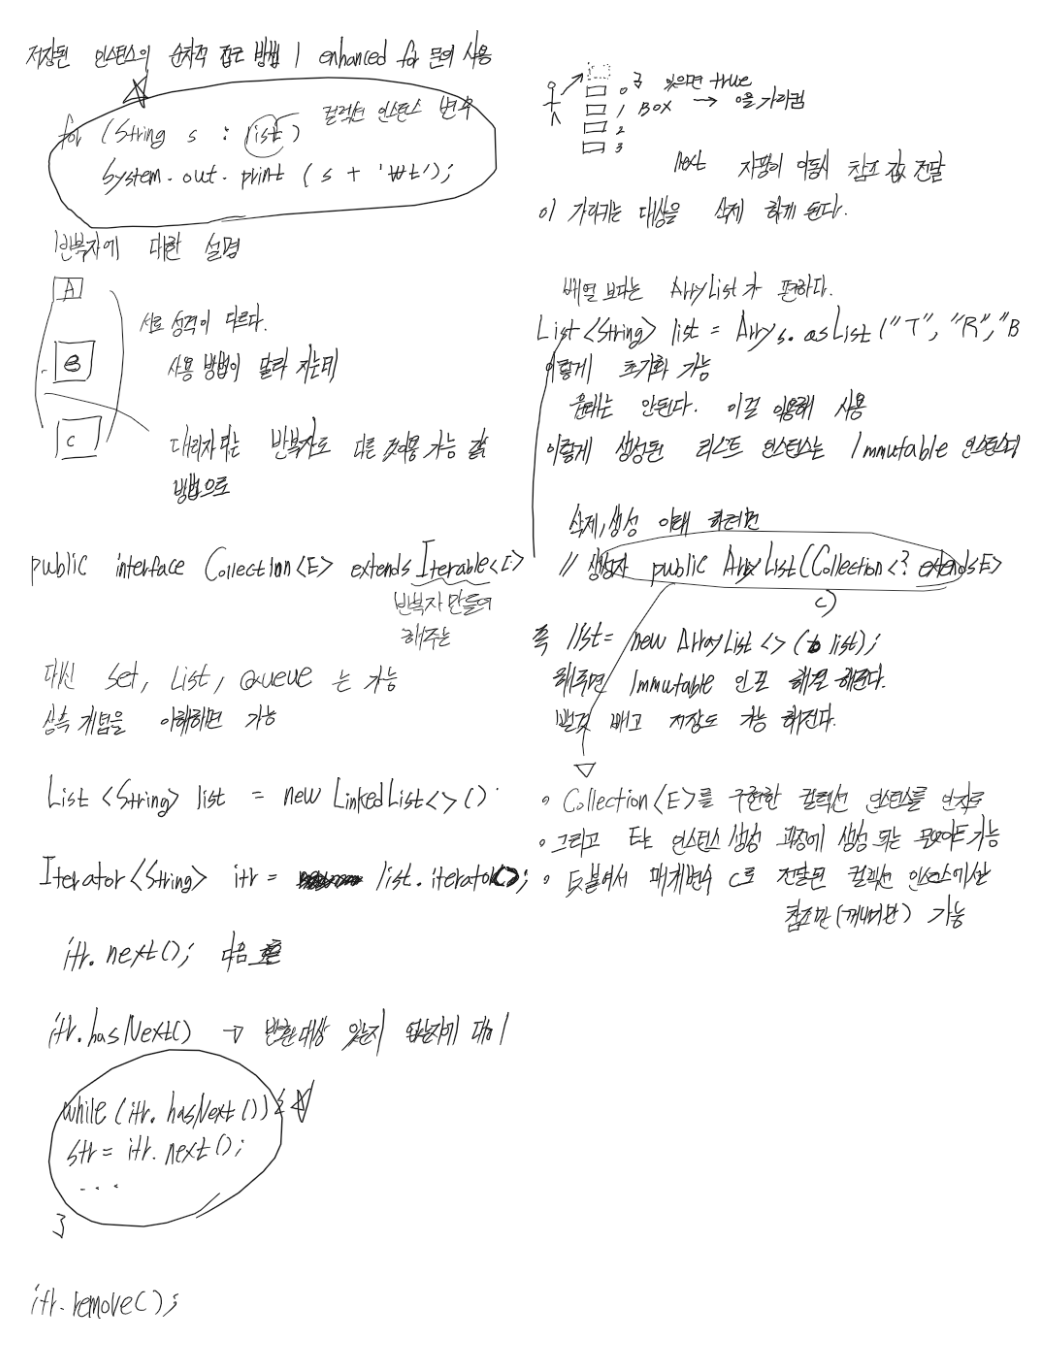 저장된 인스턴스의 순차적 접근 방법 1 enhanced for 문의 사용
for (String s : list) 컬렉션 인스턴스 변수
System.out.print (s + '₩t');
반복자에 대한 설명
A
서로 성격이 다르다.
B
사용 방법이 달라 지는데
C
대리자되는 반복자로 다른 것여용 가능 같은
방법으로
public interface Collection<E> extends Iterable<E>
반복자 만들어
해주는
대신 Set, List, Queue 는 가능
상속 개념을 이해하면 가능
List <String> list = new LinkedList<>()
Iterator<String> itr = list.iterator();
itr.next(); 다음
itr.hasNext() → 반환대상 있는지
while (itr.hasNext()) {
str = itr.next();
...
}
itr.remove();
0 } 있으면 true
1 BOX → 0을 가리킴
2
3
next 지팡이 이동시 참조 값 전달
이 가리키는 대상을 삭제 하게 된다.
배열 보다는 ArrayList가 편하다.
List<String> list = Arrays.asList("T", "R", "B
이렇게 초기화 가능
원래는 안된다. 이걸 이용해 사용
이렇게 생성된 리스트 인스턴스는 Immutable 인스턴스다
삭제,생성 이때 하려면
// 생성자 public ArrayList(Collection<? extends E>
c)
즉 list = new ArrayList<>(list);
해주면 Immutable 인 해결 해준다.
빼고 저장도 가능 해진다.
◦ Collection<E>를 구현한 컬렉션 인스턴스를 인자로
◦ 그리고 E는 인스턴스 생성 과정에 생성 되는 가능
◦ 덧붙여서 매개변수 c로 전달된 컬렉션 인스턴스에선
참조만(꺼내기만) 가능